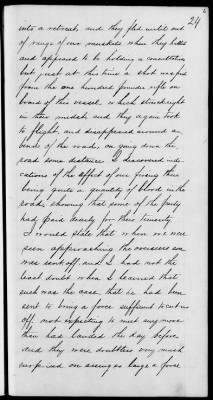 24
into a retreat, and they fled until out
of range of our muskets when they halted
and appeared to be holding a consultation
but just at this time a shot was fired
from the one hundred pounder rifle on
board of this vessel which struck right
in their midst and they again took
to flight, and disappeared around a
bend of the road, on going down the
road some distance I discovered indi-
cations of the effect of our firing there
being quite a quantity of blood in the
road, showing that some of the party
had paid dearly for their temerity
I would state that when we were
seen approaching the overseers son
was sent off and I had not the
least doubt when I learned that
such was the case that he had been
sent to bring a force sufficient to cut us
off, not expecting to meet any more
than had landed the day before
and they were doubtless very much
surprised on seeing as large a force